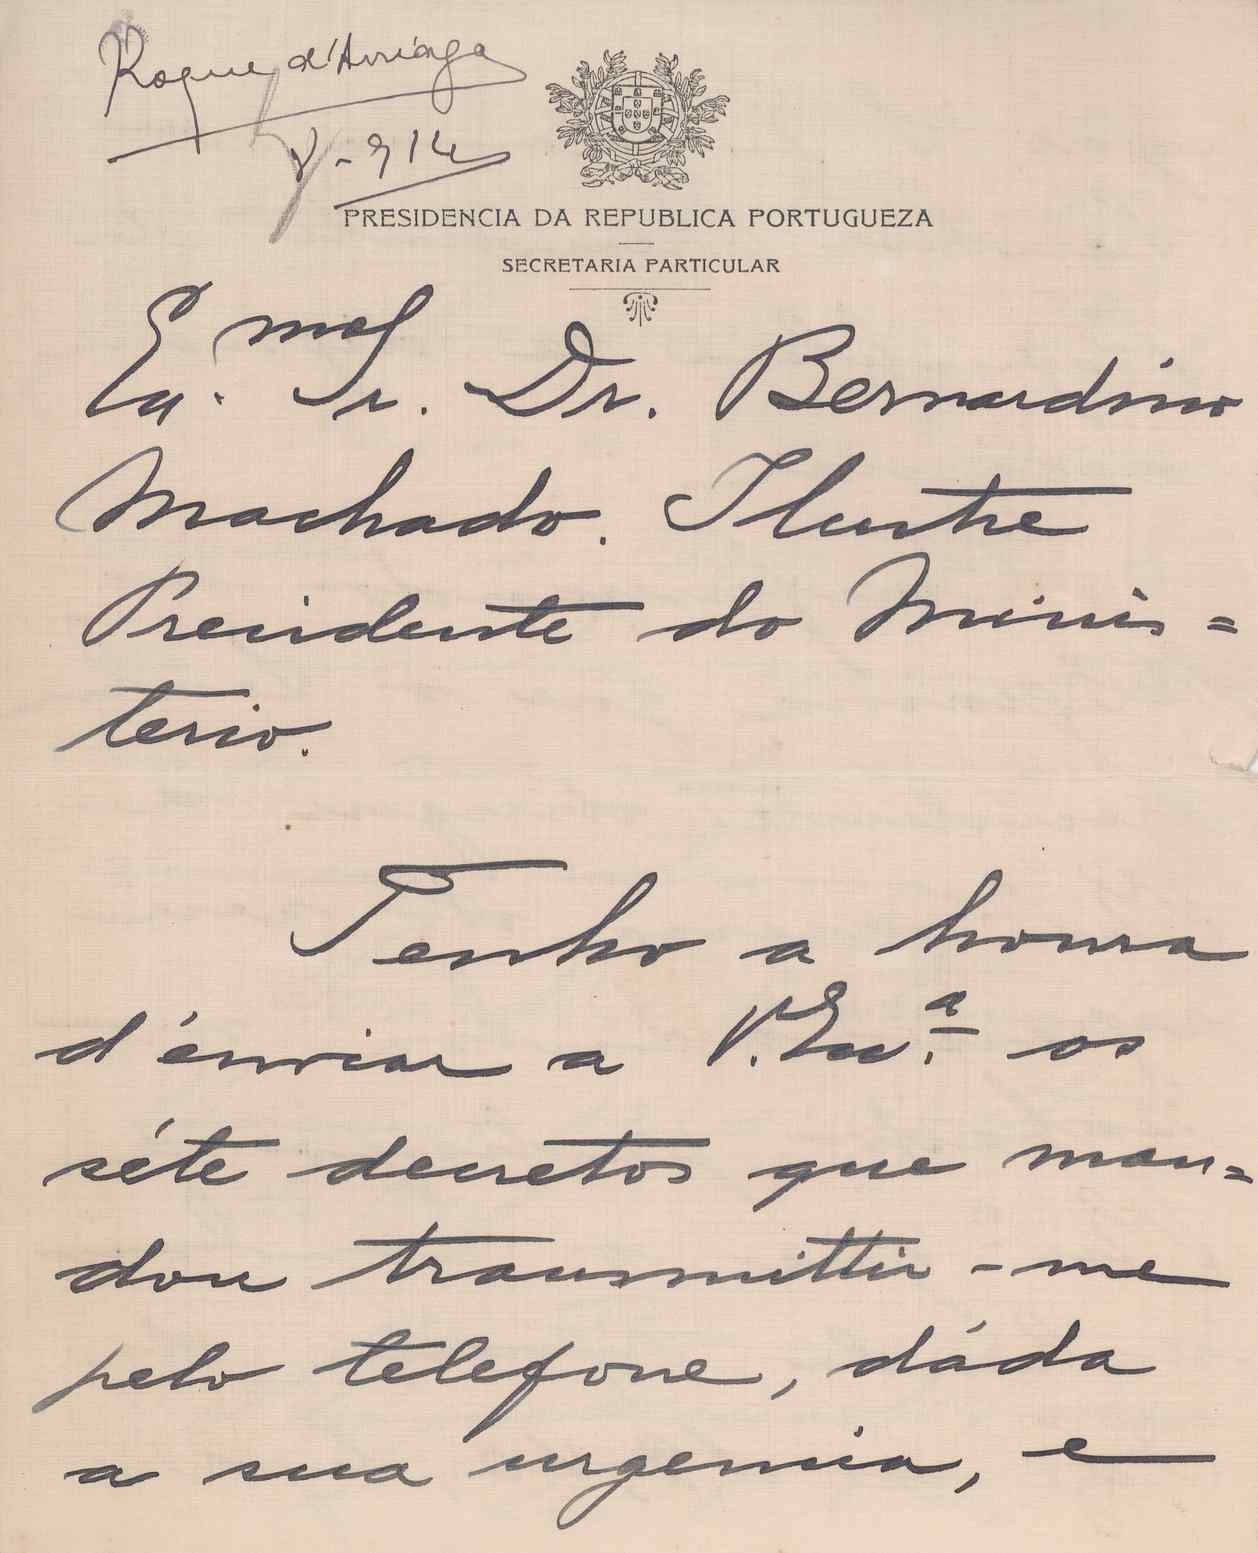 Roque d'Arriaga
V-914
PRESIDENCIA DA REPUBLICA PORTUGUEZA
SECRETARIA PARTICULAR
Ex.mo Sr. Dr. Bernardino
Machado. Ilustre
Presidente do Minis=
terio.
Tenho a honra
d'énviar a V. Exc.ª os
séte decretos que man=
dou transmittir-me
pelo telefone, dáda
a sua urgencia, e